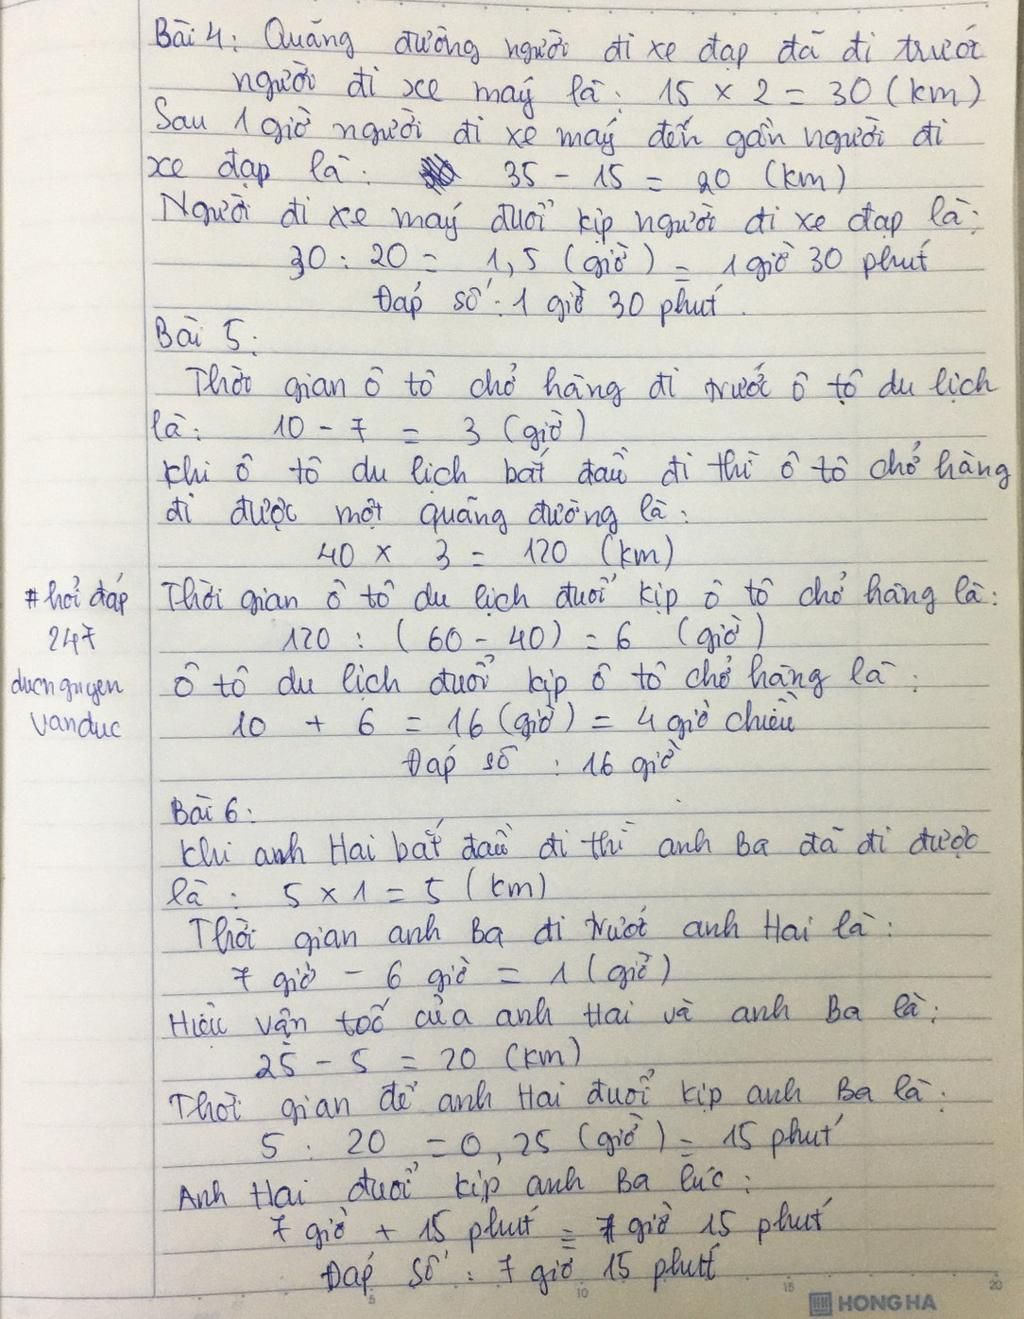 Bài 4: Quãng đường người đi xe đạp đã đi trước
người đi xe máy là: 15 x 2 = 30 (km)
Sau 1 giờ người đi xe máy đến gần người đi
xe đạp là: 35 - 15 = 20 (km)
Người đi xe máy đuổi kịp người đi xe đạp là:
30 : 20 = 1,5 (giờ) = 1 giờ 30 phút
Đáp số: 1 giờ 30 phút.
Bài 5:
Thời gian ô tô chở hàng đi trước ô tô du lịch
là: 10 - 7 = 3 (giờ)
Khi ô tô du lịch bắt đầu đi thì ô tô chở hàng
đi được một quãng đường là:
40 x 3 = 120 (km)
Thời gian ô tô du lịch đuổi kịp ô tô chở hàng là:
120 : (60 - 40) = 6 (giờ)
Ô tô du lịch đuổi kịp ô tô chở hàng là:
10 + 6 = 16 (giờ) = 4 giờ chiều
Đáp số : 16 giờ
# hỏi đáp
247
ducnguyen
vanduc
Bài 6:
Khi anh Hai bắt đầu đi thì anh Ba đã đi được
là: 5 x 1 = 5 (km)
Thời gian anh Ba đi trước anh Hai là:
7 giờ - 6 giờ = 1 (giờ)
Hiệu vận tốc của anh Hai và anh Ba là:
25 - 5 = 20 (km)
Thời gian để anh Hai đuổi kịp anh Ba là:
5 : 20 = 0,25 (giờ) = 15 phút
Anh Hai đuổi kịp anh Ba lúc:
7 giờ + 15 phút = 7 giờ 15 phút
Đáp số : 7 giờ 15 phút
5 10 15 20
HONG HA